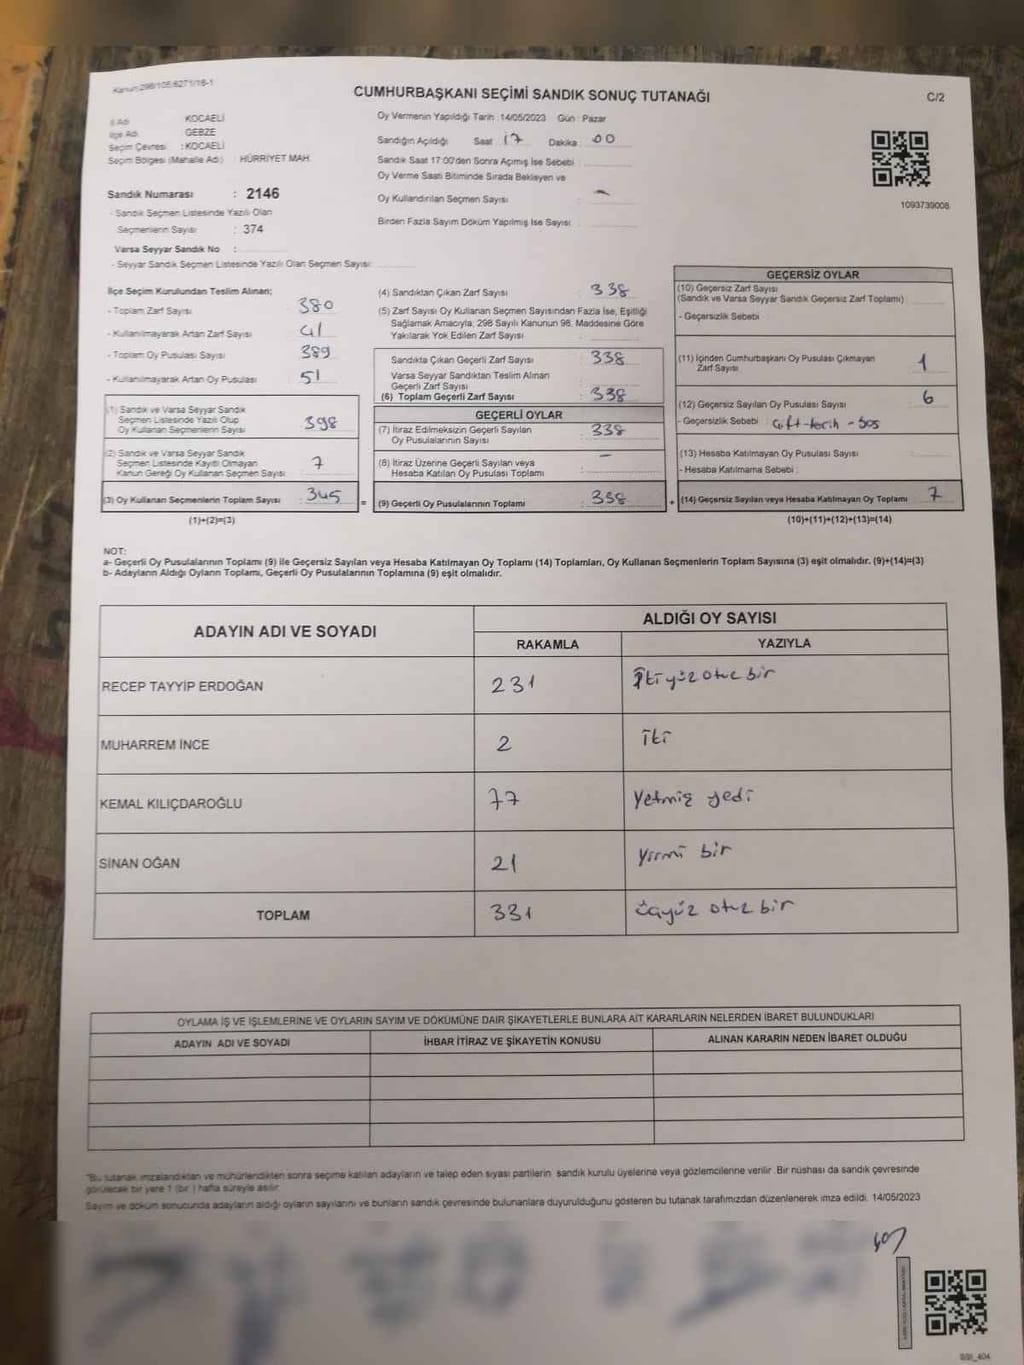 Kanun:298/105,6271/16-1
CUMHURBAŞKANI SEÇİMİ SANDIK SONUÇ TUTANAĞI
C/2
İl Adı KOCAELİ
İlçe Adı GEBZE
Seçim Çevresi : KOCAELİ
Seçim Bölgesi (Mahalle Adı) : HÜRRİYET MAH
Oy Vermenin Yapıldığı Tarih : 14/05/2023 Gün : Pazar
Sandığın Açıldığı Saat 17 Dakika 00
Sandık Saat 17:00'den Sonra Açılmış İse Sebebi :
Oy Verme Saati Bitiminde Sırada Bekleyen ve
Oy Kullandırılan Seçmen Sayısı : -
Birden Fazla Sayım Döküm Yapılmış İse Sayısı :
1093739008
Sandık Numarası : 2146
- Sandık Seçmen Listesinde Yazılı Olan
Seçmenlerin Sayısı : 374
Varsa Seyyar Sandık No :
- Seyyar Sandık Seçmen Listesinde Yazılı Olan Seçmen Sayısı:
İlçe Seçim Kurulundan Teslim Alınan;
- Toplam Zarf Sayısı : 380
- Kullanılmayarak Artan Zarf Sayısı : 41
- Toplam Oy Pusulası Sayısı : 389
- Kullanılmayarak Artan Oy Pusulası : 51
(1) Sandık ve Varsa Seyyar Sandık
Seçmen Listesinde Yazılı Olup
Oy Kullanan Seçmenlerin Sayısı : 398
(2) Sandık ve Varsa Seyyar Sandık
Seçmen Listesinde Kayıtlı Olmayan
Kanun Gereği Oy Kullanan Seçmen Sayısı : 7
(3) Oy Kullanan Seçmenlerin Toplam Sayısı : 345 =
(1)+(2)=(3)
(4) Sandıktan Çıkan Zarf Sayısı : 338
(5) Zarf Sayısı Oy Kullanan Seçmen Sayısından Fazla İse, Eşitliği
Sağlamak Amacıyla, 298 Sayılı Kanunun 98. Maddesine Göre
Yakılarak Yok Edilen Zarf Sayısı :
Sandıkta Çıkan Geçerli Zarf Sayısı : 338
Varsa Seyyar Sandıktan Teslim Alınan
Geçerli Zarf Sayısı :
(6) Toplam Geçerli Zarf Sayısı : 338
GEÇERLİ OYLAR
(7) İtiraz Edilmeksizin Geçerli Sayılan
Oy Pusulalarının Sayısı : 338
(8) İtiraz Üzerine Geçerli Sayılan veya
Hesaba Katılan Oy Pusulası Toplamı : -
(9) Geçerli Oy Pusulalarının Toplamı : 338 +
GEÇERSİZ OYLAR
(10) Geçersiz Zarf Sayısı
(Sandık ve Varsa Seyyar Sandık Geçersiz Zarf Toplamı) :
- Geçersizlik Sebebi :
(11) İçinden Cumhurbaşkanı Oy Pusulası Çıkmayan
Zarf Sayısı : 1
(12) Geçersiz Sayılan Oy Pusulası Sayısı : 6
- Geçersizlik Sebebi : çift-terih - bos
(13) Hesaba Katılmayan Oy Pusulası Sayısı :
- Hesaba Katılmama Sebebi :
(14) Geçersiz Sayılan veya Hesaba Katılmayan Oy Toplamı : 7
(10)+(11)+(12)+(13)=(14)
NOT:
a- Geçerli Oy Pusulalarının Toplamı (9) ile Geçersiz Sayılan veya Hesaba Katılmayan Oy Toplamı (14) Toplamları, Oy Kullanan Seçmenlerin Toplam Sayısına (3) eşit olmalıdır. (9)+(14)=(3)
b- Adayların Aldığı Oyların Toplamı, Geçerli Oy Pusulalarının Toplamına (9) eşit olmalıdır.
ADAYIN ADI VE SOYADI
ALDIĞI OY SAYISI
RAKAMLA YAZIYLA
RECEP TAYYİP ERDOĞAN 231 İki yüz otuz bir
MUHARREM İNCE 2 İki
KEMAL KILIÇDAROĞLU 77 Yetmiş yedi
SİNAN OĞAN 21 Yirmi bir
TOPLAM 331 üçyüz otuz bir
OYLAMA İŞ VE İŞLEMLERİNE VE OYLARIN SAYIM VE DÖKÜMÜNE DAİR ŞİKAYETLERLE BUNLARA AİT KARARLARIN NELERDEN İBARET BULUNDUKLARI
ADAYIN ADI VE SOYADI İHBAR İTİRAZ VE ŞİKAYETİN KONUSU ALINAN KARARIN NEDEN İBARET OLDUĞU
"Bu tutanak imzalandıktan ve mühürlendikten sonra seçime katılan adayların ve talep eden siyasi partilerin sandık kurulu üyelerine veya gözlemcilerine verilir. Bir nüshası da sandık çevresinde
görülecek bir yere 1 (bir ) hafta süreyle asılır.
Sayım ve döküm sonucunda adayların aldığı oyların sayılarını ve bunların sandık çevresinde bulunanlara duyurulduğunu gösteren bu tutanak tarafımızdan düzenlenerek imza edildi. 14/05/2023